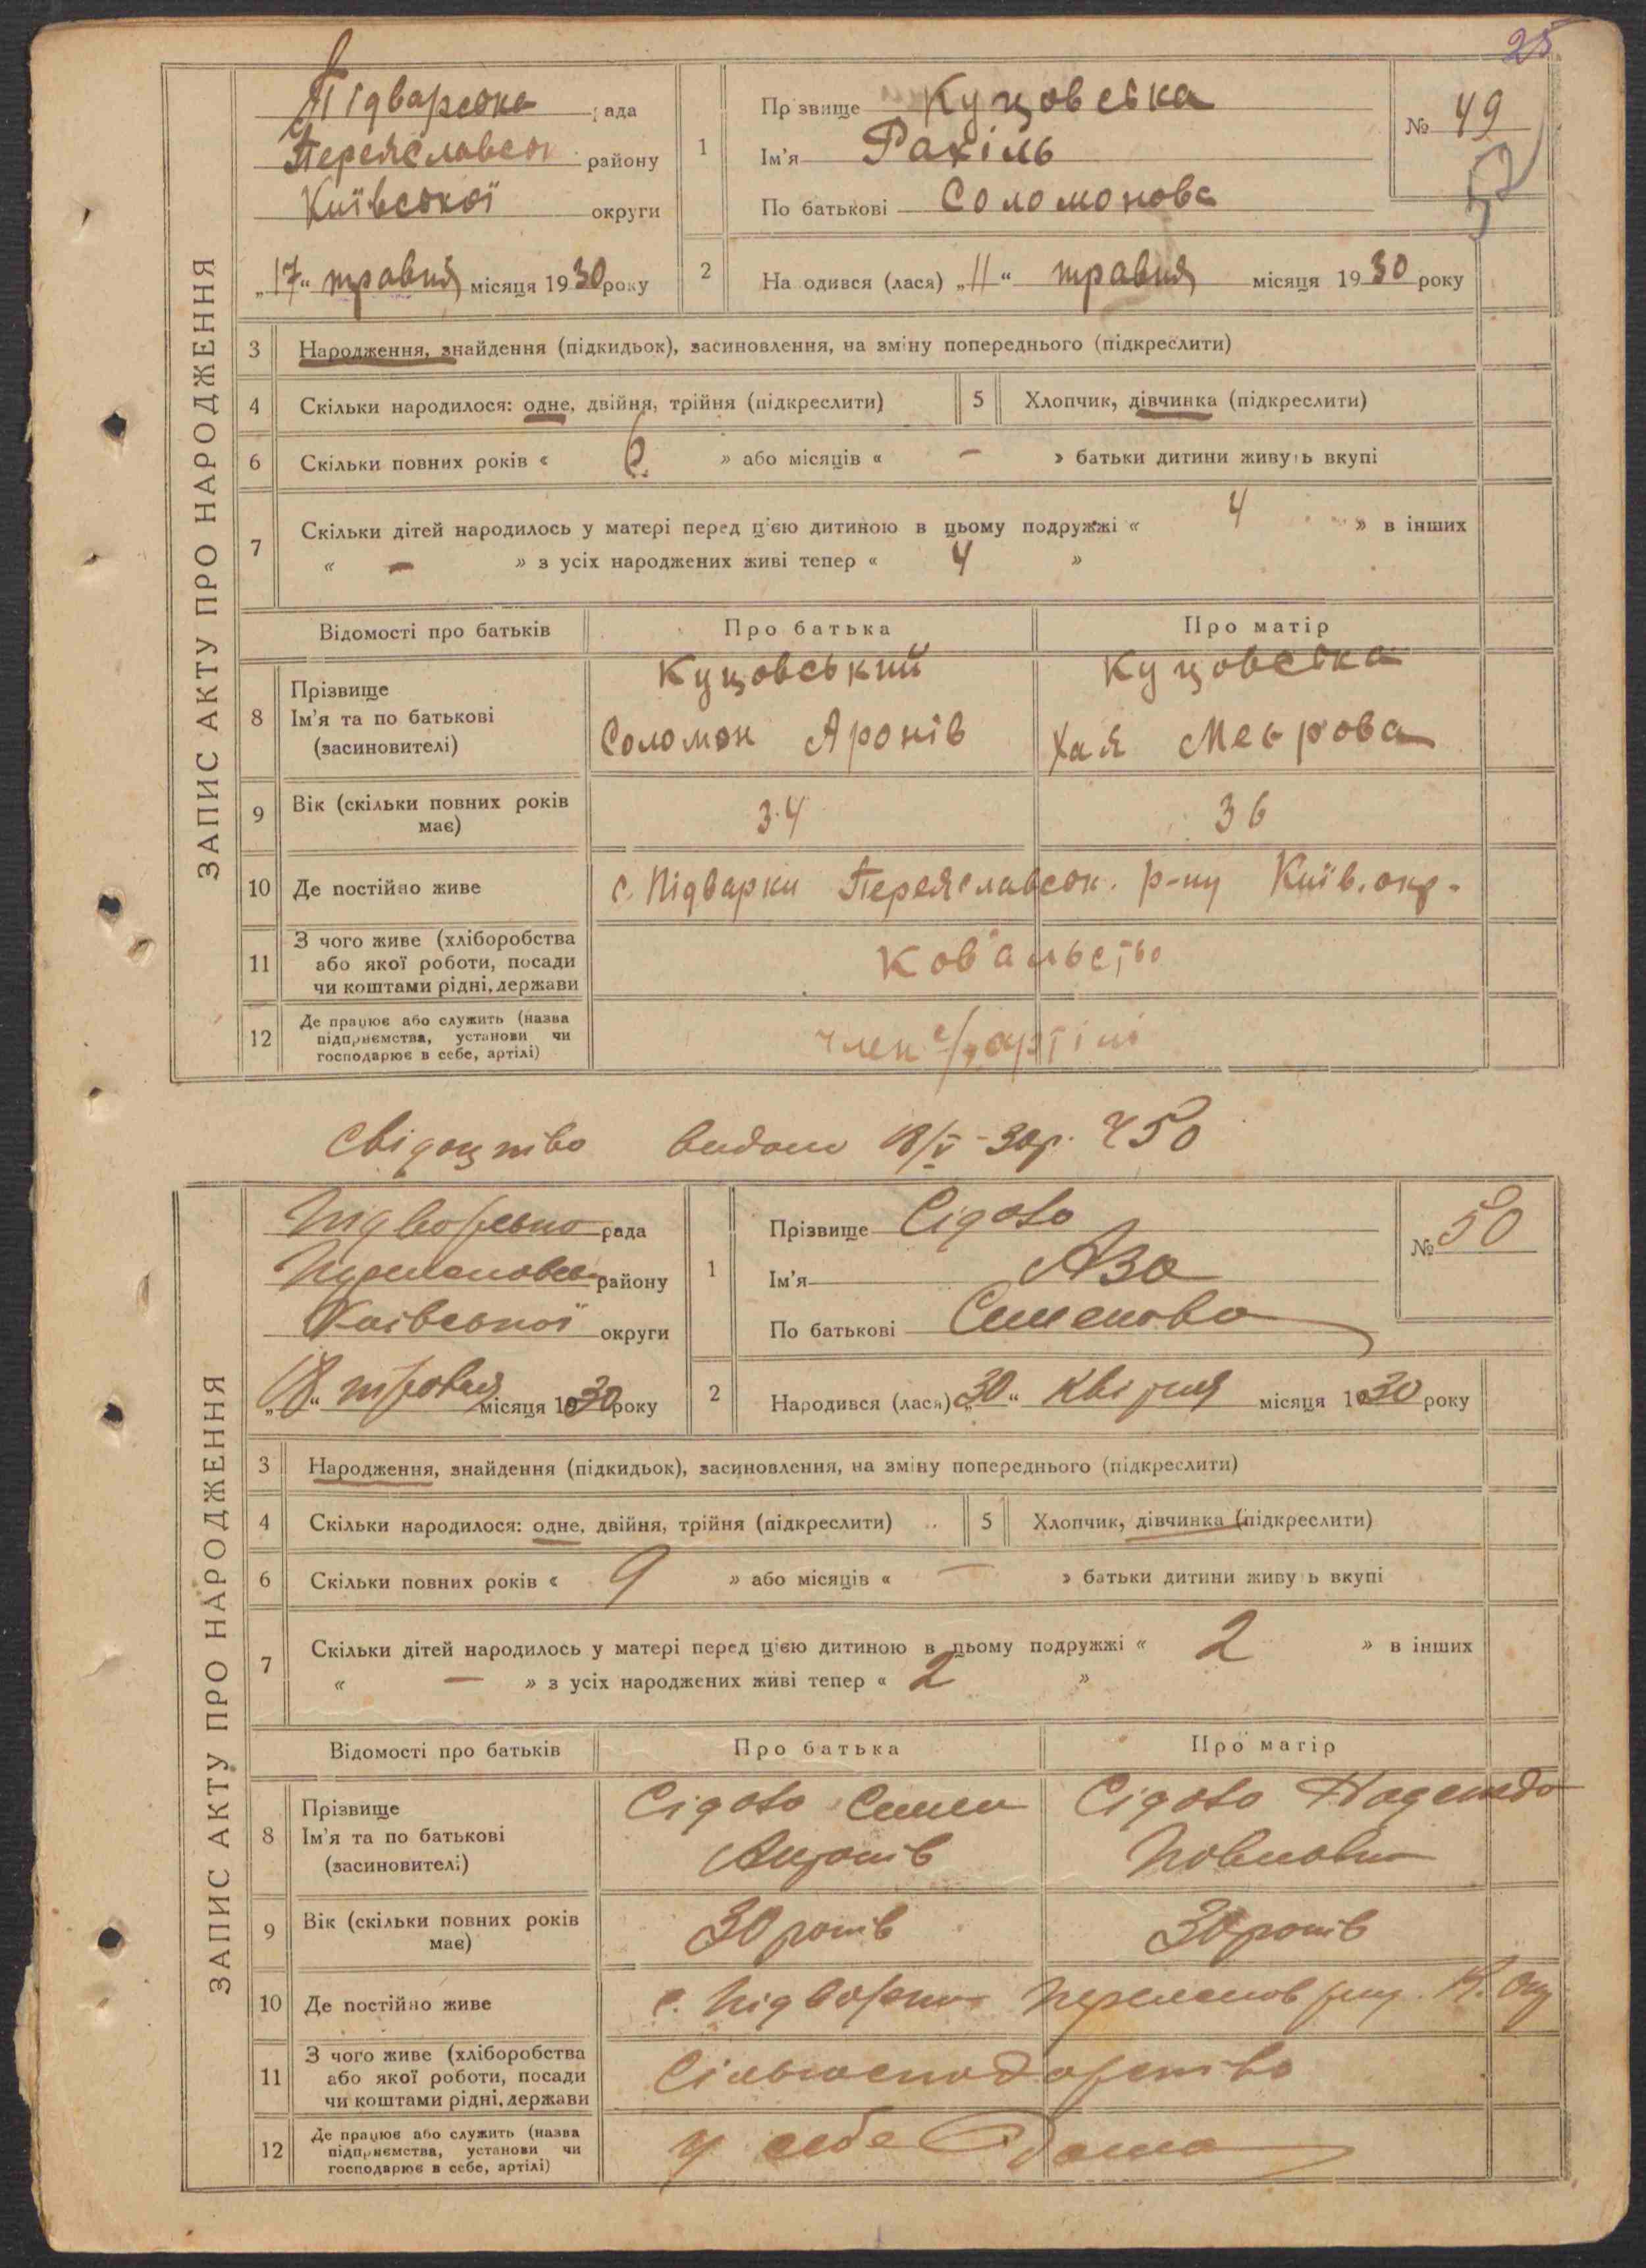 25
ЗАПИС АКТУ ПРО НАРОДЖЕННЯ
Підварська рада
Переяславськ району
Київської округи
„17“ травня місяця 1930 року
1 Прізвище Куцовська
Ім'я Рахіль
По батькові Соломонова
№ 49
2 Народився (лася) „11“ травня місяця 1930 року
3 Народження, знайдення (підкидьок), засиновлення, на зміну попереднього (підкреслити)
4 Скільки народилося: одне, двійня, трійня (підкреслити) 5 Хлопчик, дівчинка (підкреслити)
6 Скільки повних років « » або місяців « — » батьки дитини живуть вкупі
7 Скільки дітей народилось у матері перед цією дитиною в цьому подружжі « 4 » в інших
« — » з усіх народжених живі тепер « 4 »
Відомості про батьків Про батька Про матір
8 Прізвище Ім'я та по батькові (засиновителі)
Куцовський Куцовська
Соломон Аронів Хая Меєрова
9 Вік (скільки повних років має) 34 36
10 Де постійно живе с. Підварки Переяславськ. р-ну Київ. окр.
11 З чого живе (хліборобства або якої роботи, посади чи коштами рідні, держави Ковальство
12 Де працює або служить (назва підприємства, установи чи господарює в себе, артілі) член с/г артілі
Свідоцтво видано 18/V-30р. 50
ЗАПИС АКТУ ПРО НАРОДЖЕННЯ
Підварсько рада
району
Київської округи
„18“ травня місяця 1930 року
1 Прізвище
Ім'я Аза
По батькові Семенова
№ 50
2 Народився (лася) „30“ квітня місяця 1930 року
3 Народження, знайдення (підкидьок), засиновлення, на зміну попереднього (підкреслити)
4 Скільки народилося: одне, двійня, трійня (підкреслити) 5 Хлопчик, дівчинка (підкреслити)
6 Скільки повних років « 9 » або місяців « — » батьки дитини живуть вкупі
7 Скільки дітей народилось у матері перед цією дитиною в цьому подружжі « 2 » в інших
« — » з усіх народжених живі тепер « 2 »
Відомості про батьків Про батька Про матір
8 Прізвище Ім'я та по батькові (засиновителі)
Семен
9 Вік (скільки повних років має) 30 років 30 років
10 Де постійно живе с. Підварки
11 З чого живе (хліборобства або якої роботи, посади чи коштами рідні, держави
12 Де працює або служить (назва підприємства, установи чи господарює в себе, артілі) у себе дома